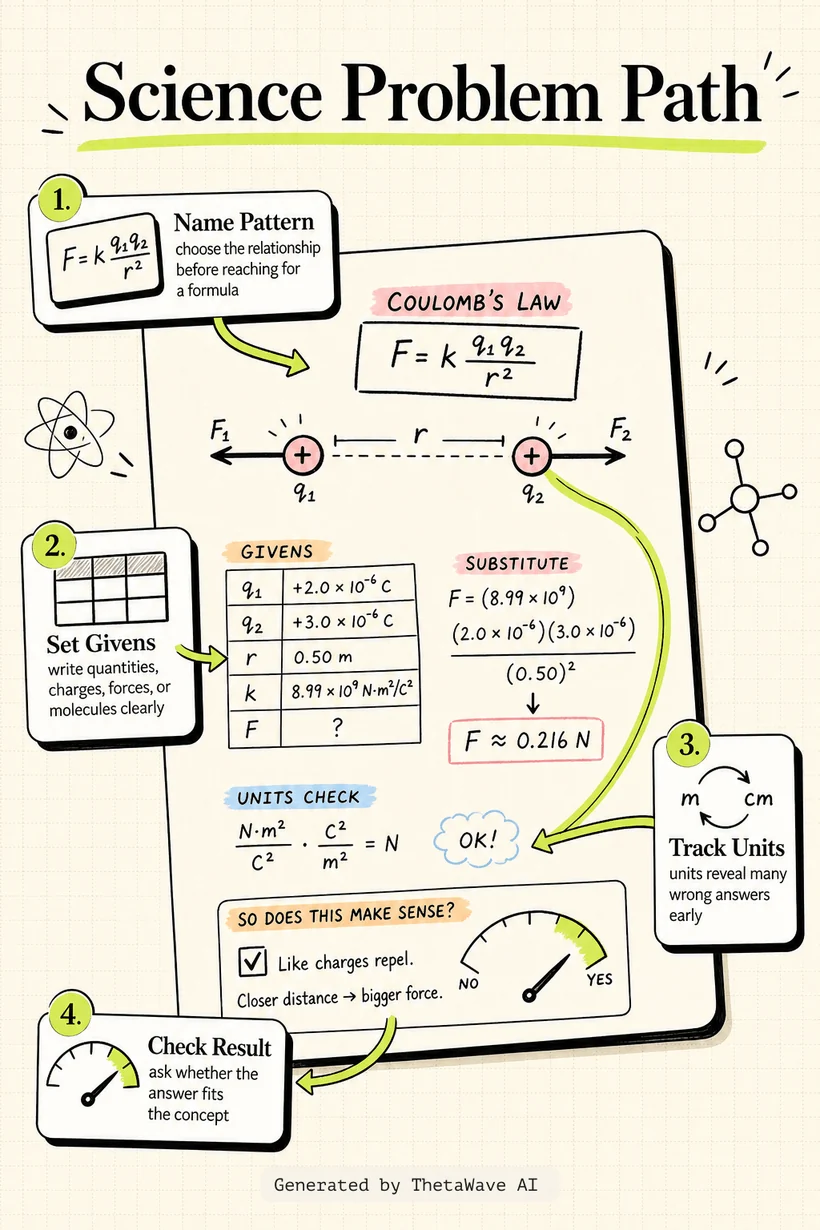 Science Problem Path
1.
F = k q₁q₂ / r²
Name Pattern
choose the relationship
before reaching for
a formula
COULOMB'S LAW
F = k q₁q₂ / r²
F₁
r
F₂
+
+
q₁
q₂
2.
Set Givens
write quantities,
charges, forces, or
molecules clearly
GIVENS
q₁ +2.0 × 10⁻⁶ C
q₂ +3.0 × 10⁻⁶ C
r 0.50 m
k 8.99 × 10⁹ N·m²/C²
F ?
SUBSTITUTE
F = (8.99 × 10⁹)
(2.0 × 10⁻⁶)(3.0 × 10⁻⁶)
(0.50)²
↓
F ≈ 0.216 N
3.
m cm
Track Units
units reveal many
wrong answers
early
UNITS CHECK
N·m² / C² · C² / m² = N
OK!
SO DOES THIS MAKE SENSE?
Like charges repel.
Closer distance → bigger force.
NO
YES
4.
Check Result
ask whether the
answer fits
the concept
Generated by ThetaWave AI